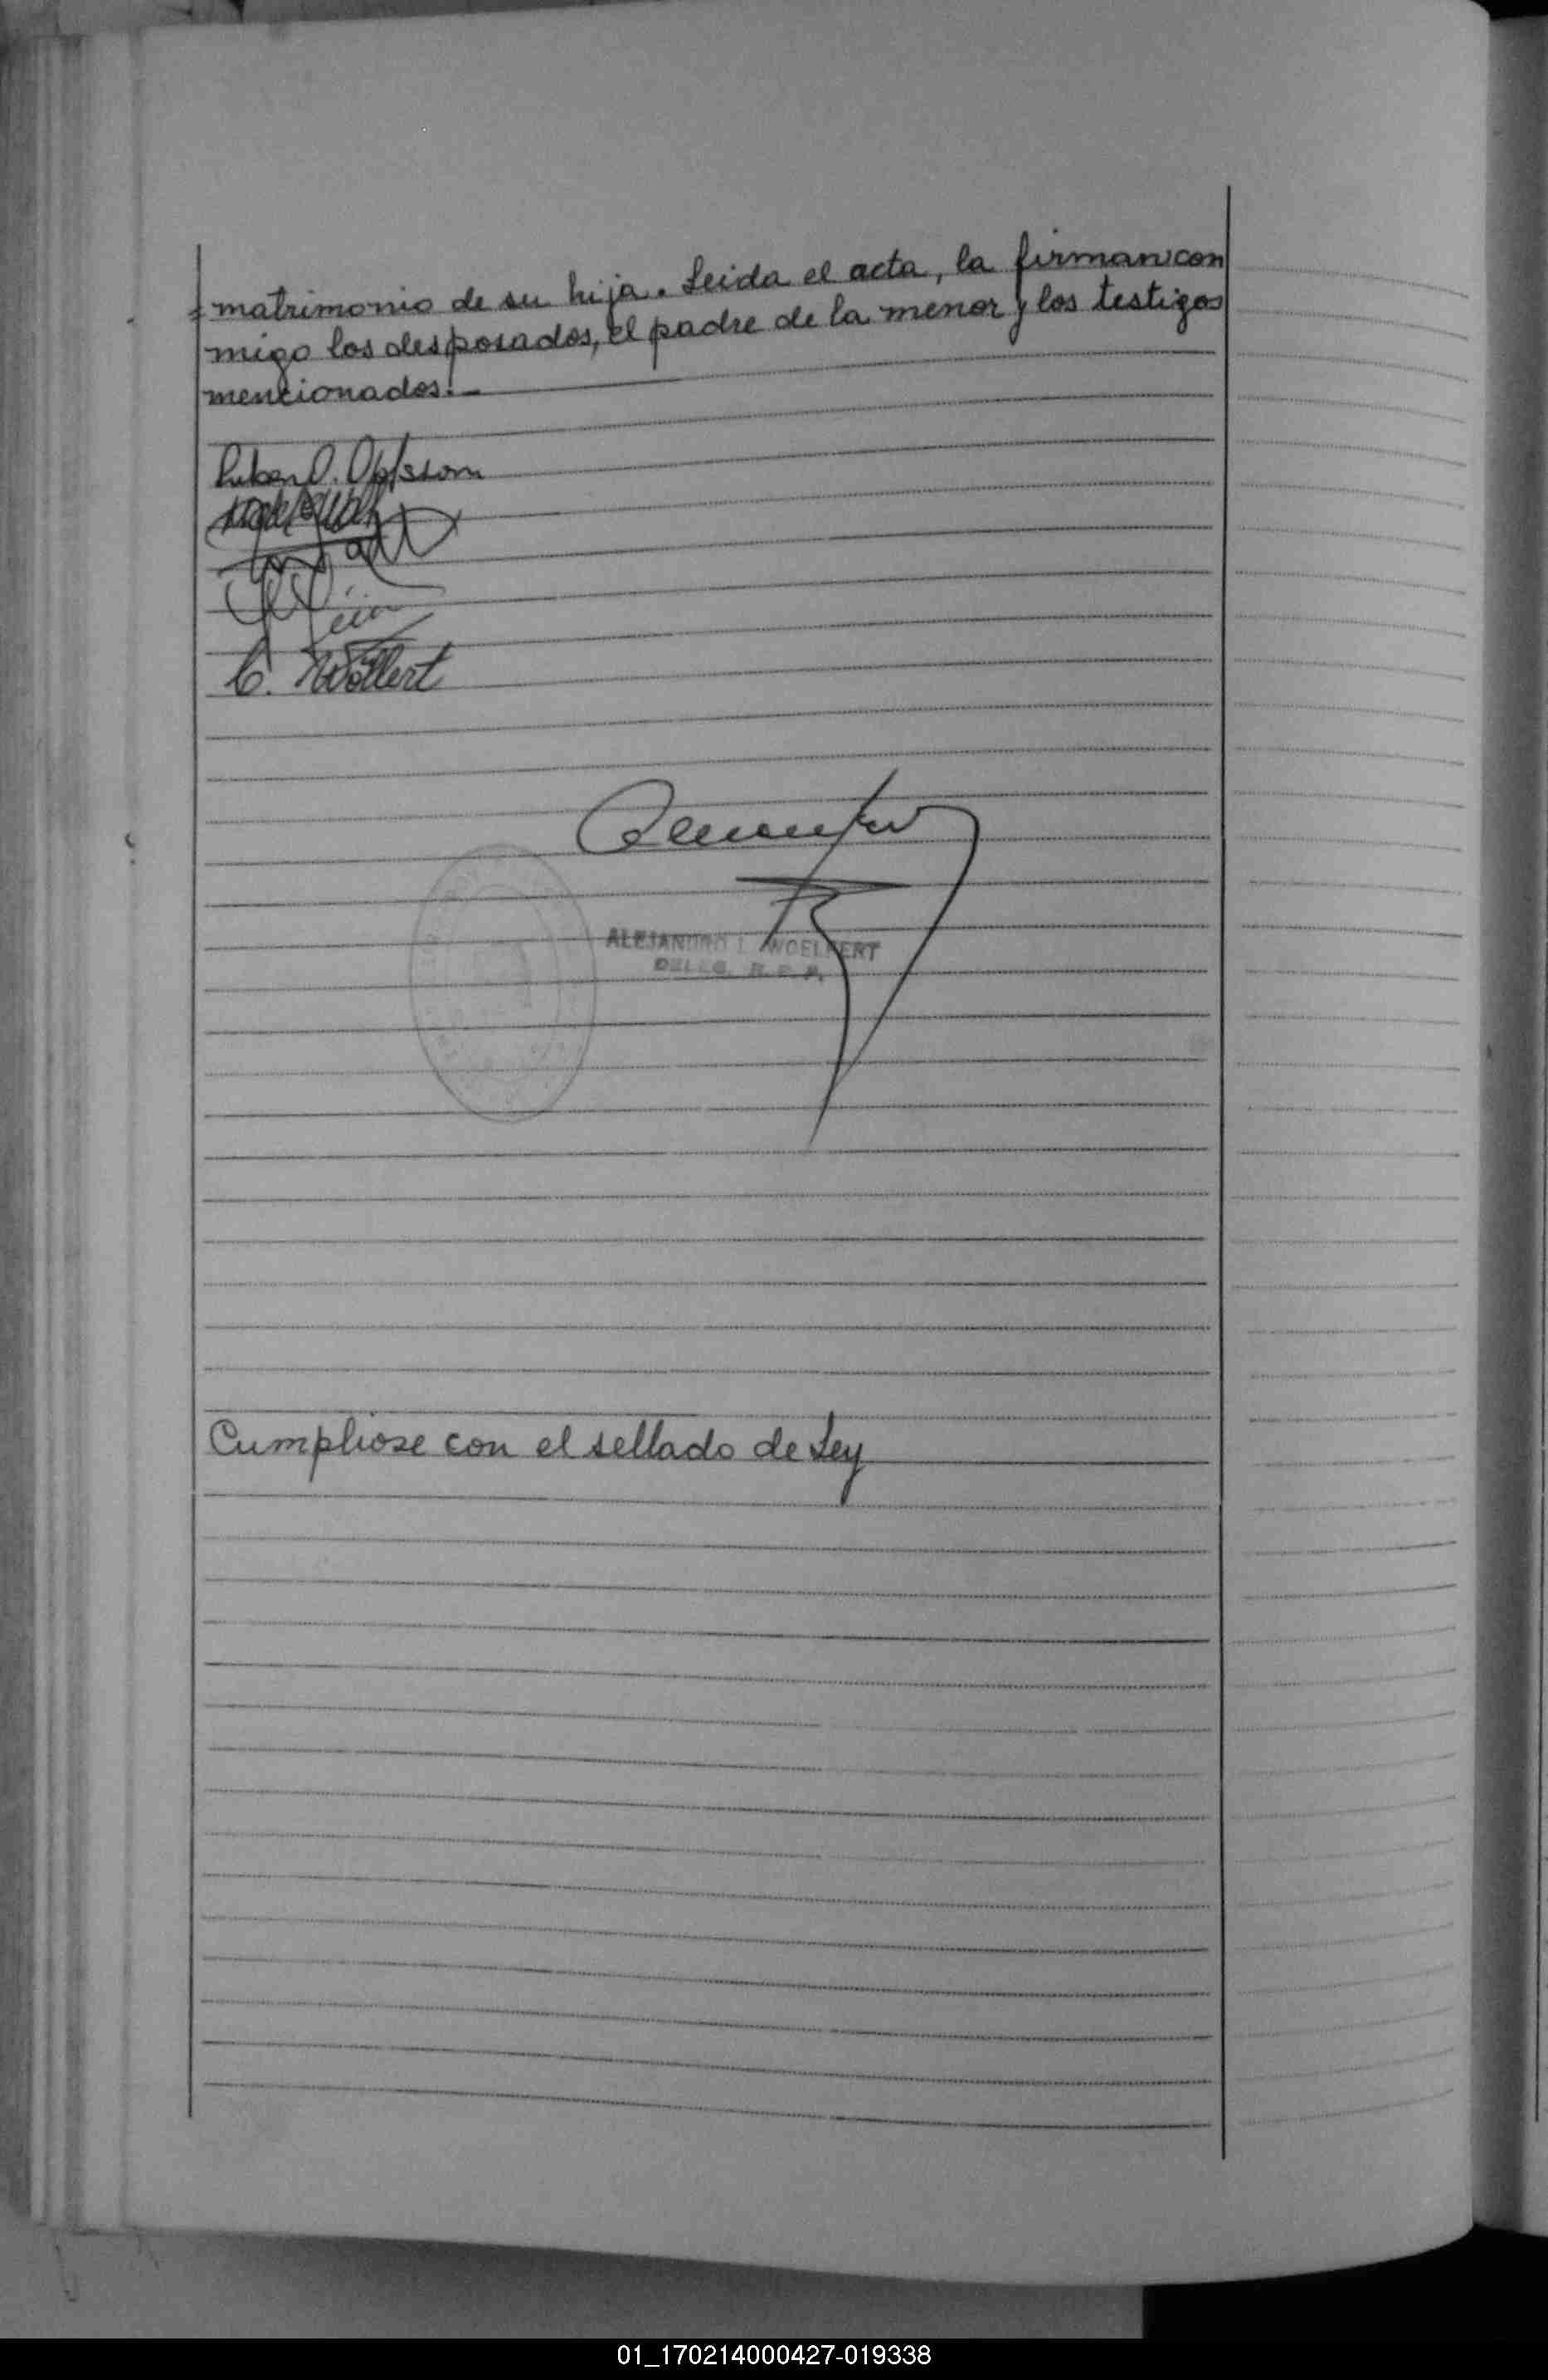 matrimonio de su hija. Leida el acta, la firman con
migo los desposados, el padre de la menor y los testigos
mencionados.—
C. Wollert
ALEJANDRO L. WOELFERT
DELEG. R. C. P.
Cumpliose con el sellado de Ley
01_170214000427-019338